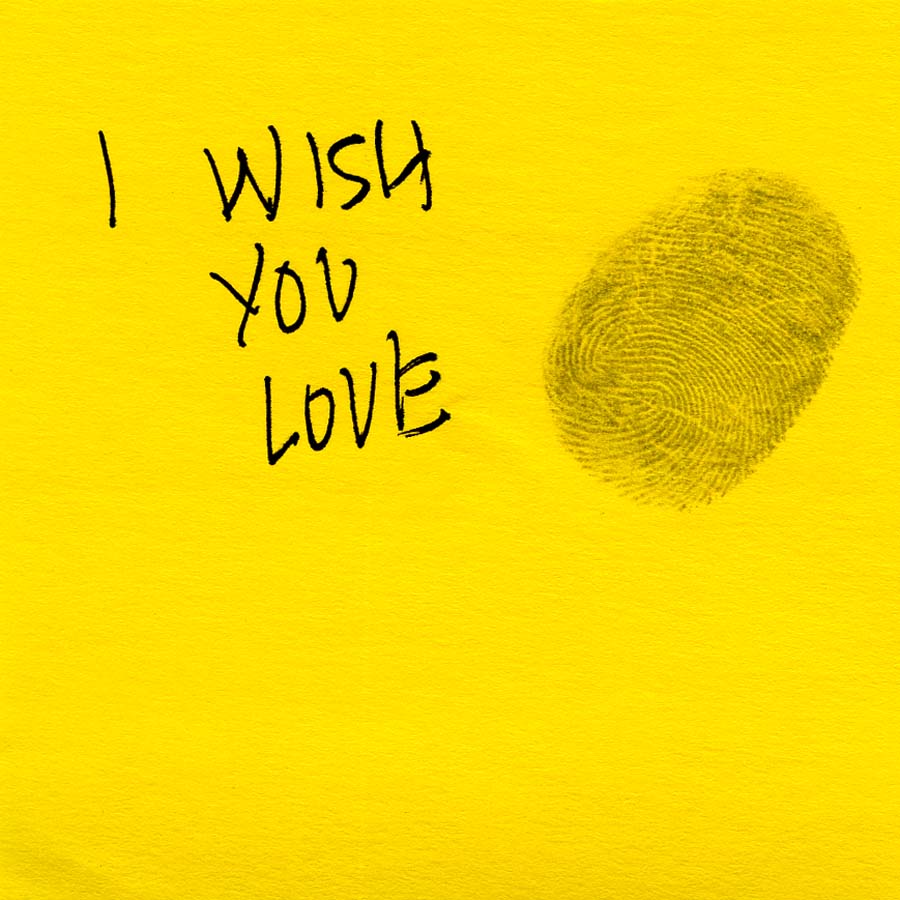 I WISH
YOU
LOVE